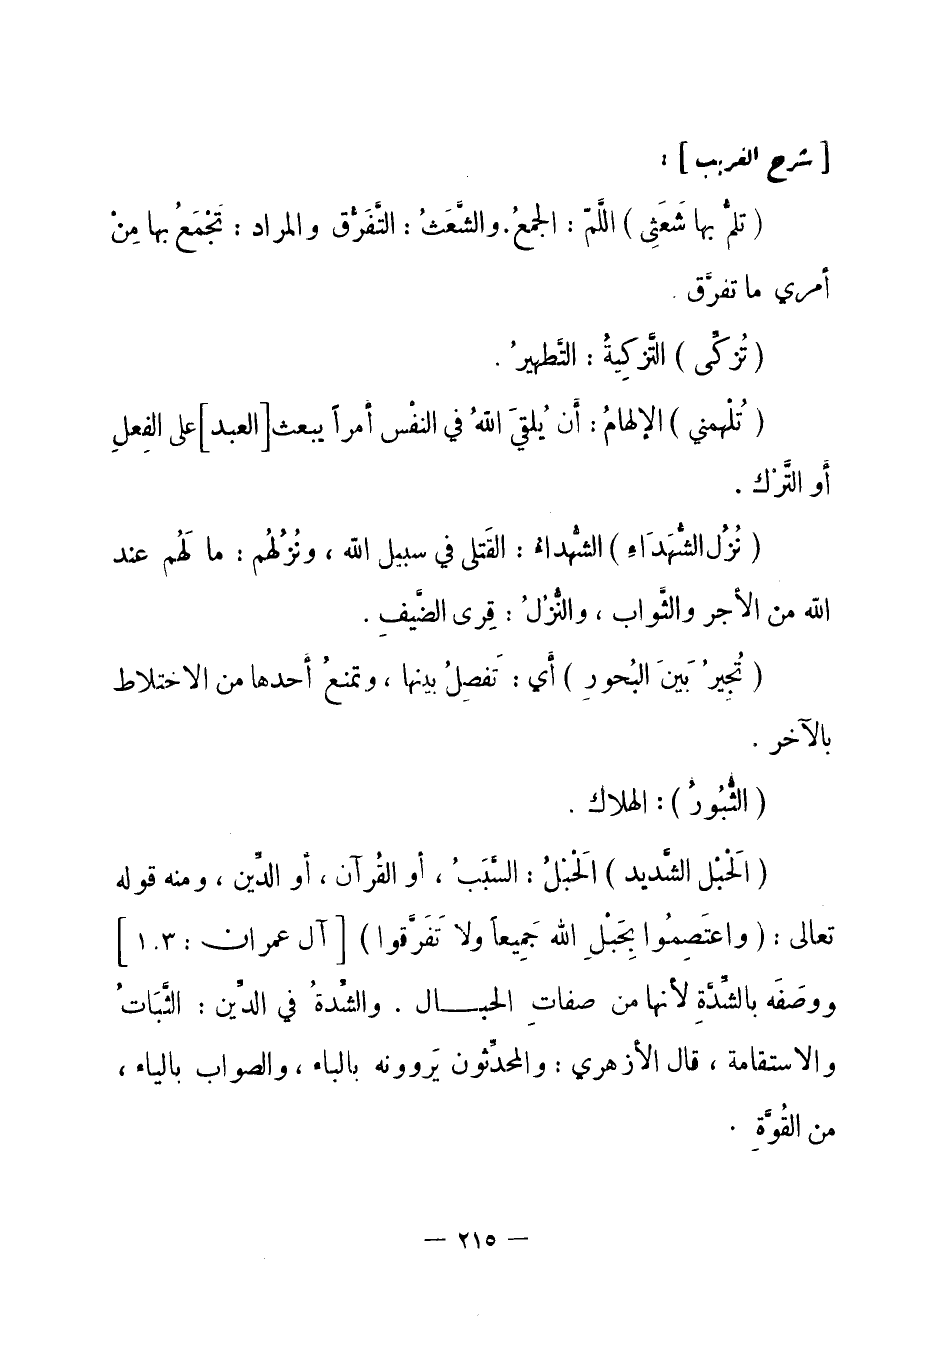 [ شرح الغريب ] :
( تلمُّ بها شَعَثِي ) اللَّمّ : الجمعُ . والشَّعَثُ : التَّفَرُّق والمراد : تَجْمَعُ بها مِنْ
أمري ما تفرَّق .
( تُزكِّى ) التَّزكِيةُ : التَّطهيرُ .
( تُلْهمني ) الإلهامُ : أن يُلقيَ اللهُ في النفْس أمراً يبعث [العبد] على الفِعلِ
أو التَّرْك .
( نُزُل الشُّهَدَاءِ ) الشُّهداءُ : القَتلى في سبيل الله ، ونُزُلُهُم : ما لَهُم عند
الله من الأجر والثَّواب ، والنُّزُلُ : قِرى الضَّيفِ .
( تُجِيرُ بَينَ البُحورِ ) أي : تَفصِلُ بينها ، وتمنعُ أحدها من الاختلاط
بالآخر .
( الثُّبُورُ ) : الهلاك .
( الَحْبْل الشَّديد ) الَحْبْلُ : السَّبَبُ ، أو القُرآن ، أو الدِّين ، ومنه قوله
تعالى : ( واعتَصِمُوا بِحَبْلِ الله جَمِيعاً ولا تَفَرَّقوا ) [ آل عمران : ١٠٣ ]
ووصَفَه بالشِّدَّةِ لأنها من صفاتِ الحبـــال . والشِّدةُ في الدِّين : الثَّبَاتُ
والاستقامة ، قال الأزهري : والمحدِّثون يَروونه بالباء ، والصواب بالياء ،
من القُوَّةِ .
— ٢١٥ —